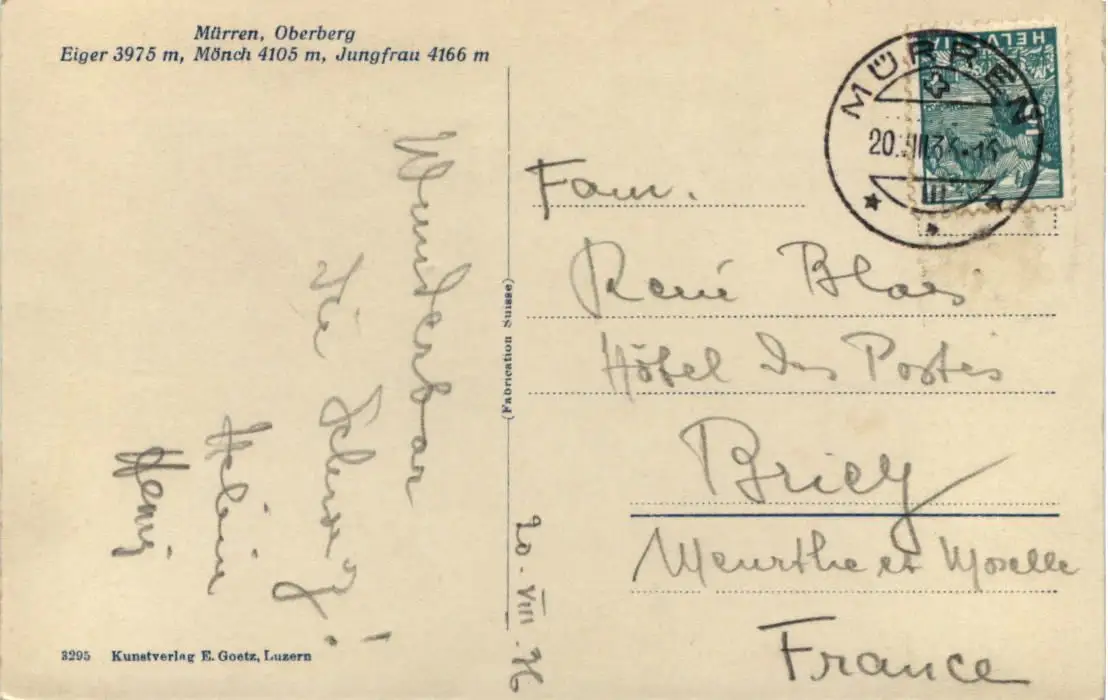 Mürren, Oberberg
Eiger 3975 m, Mönch 4105 m, Jungfrau 4166 m
Wunderbar
die Schweiz!
Hélène
Henri
20-VIII-36
(Fabrication Suisse)
3295 Kunstverlag E. Goetz, Luzern
HELVETIA
MÜRREN
20.VIII36-15
III
Fam.
René Blaes
Hôtel des Postes
Briey
Meurthe et Moselle
France